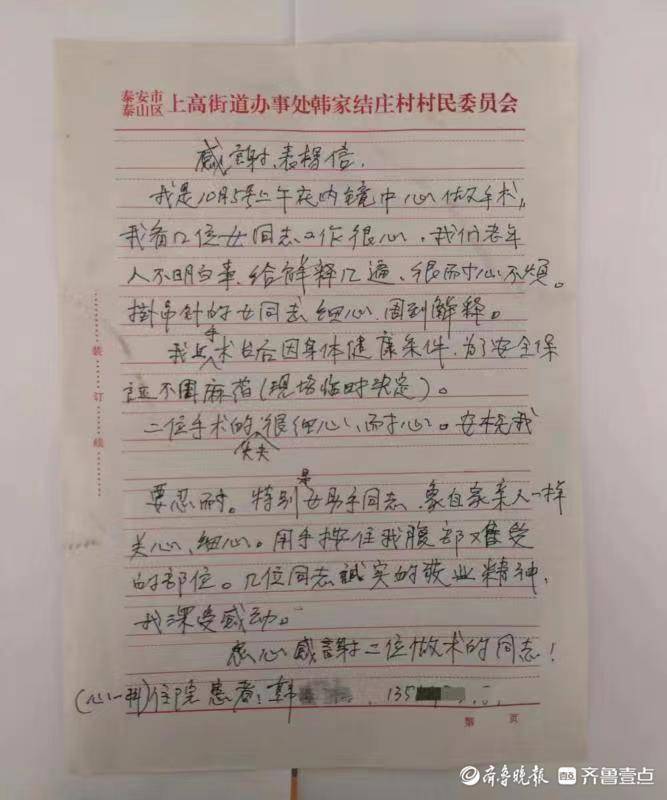 泰安市
泰山区 上高街道办事处韩家结庄村村民委员会
感謝表揚信.
我是10月5号上午在内镜中心做手术,
我看几位女同志工作很心,我们老年
人不明白事,给解释几遍、很耐心不烦。
掛吊针的女同志细心、周到解释。
我上手术台后因身体健康条件,为了安全保
证不用麻药(现场临时决定)。
二位手术的大夫很细心、耐心。安抚我
要忍耐。特别是女助手同志,象自家亲人一样
关心、细心。用手按住我腹部难受
的部位。几位同志誠实的敬业精神,
我深受感动。
衷心感謝二位做术的同志!
(心一科)住院患者:韩 135
装订线
第 页
齐鲁晚报 齐鲁壹点